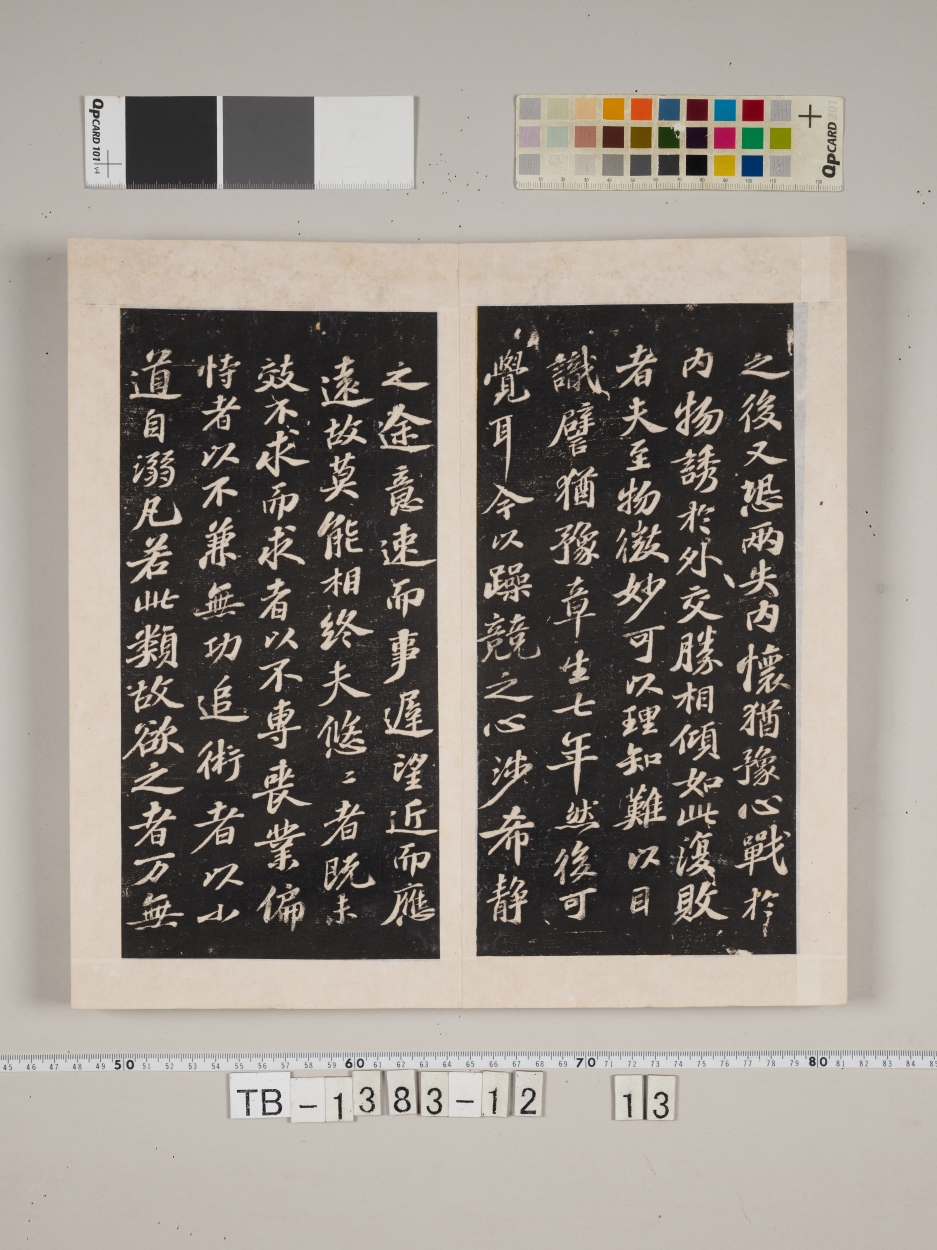 QpCARD 101 v4
QpCARD 201
之後又恐兩失内懷猶豫心戰於
内物誘於外交賒相傾如此復敗
者夫至物微妙可以理知難以目
識譬猶豫章生七年然後可
覺耳今以躁競之心涉希静
之塗意速而事遲望近而應
遠故莫能相終夫悠〻者既未
效不求而求者以不専喪業偏
恃者以不兼無功追術者以小
道自溺凡若此類故欲之者万無
45 46 47 48 49 50 51 52 53 54 55 56 57 58 59 60 61 62 63 64 65 66 67 68 69 70 71 72 73 74 75 76 77 78 79 80 81 82 83 84 85
TB-1383-12 13